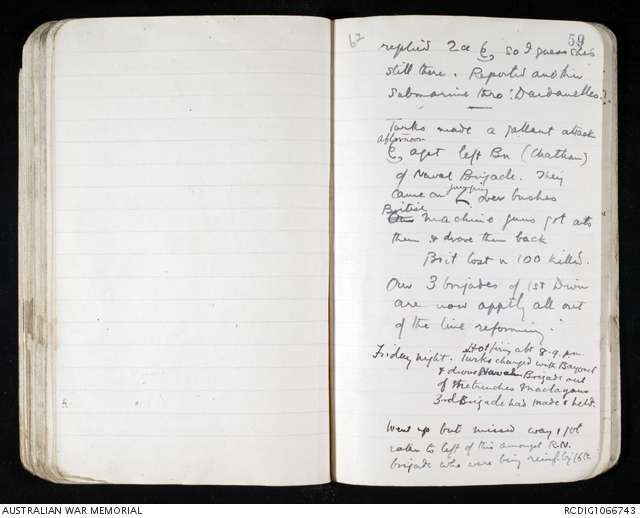 62
59
replied 2ce so I guess she's
still there. Reported another
submarine thro' Dardanelles.?
Turks made a gallant attack
afternoon
agst left Bn (Chatham)
of Naval Brigade. They
jumping
came on over bushes
British
Our machine guns got ats
them & drove them back
Brit lost n 100 killed.
Our 3 brigades of 1st Divn
are now apptly all out
of the line reforming.
Hot firing abt 8-9. pm
Friday night. Turks charged with Bayonet
& drove Naval Brigade out
of the trenches Maclagans
3rd Brigade had made & held.
Went up but missed way & got
rather to left of this amongst R.N.
brigade who were being reinf. by 15th
AUSTRALIAN WAR MEMORIAL
RCDIG1066743